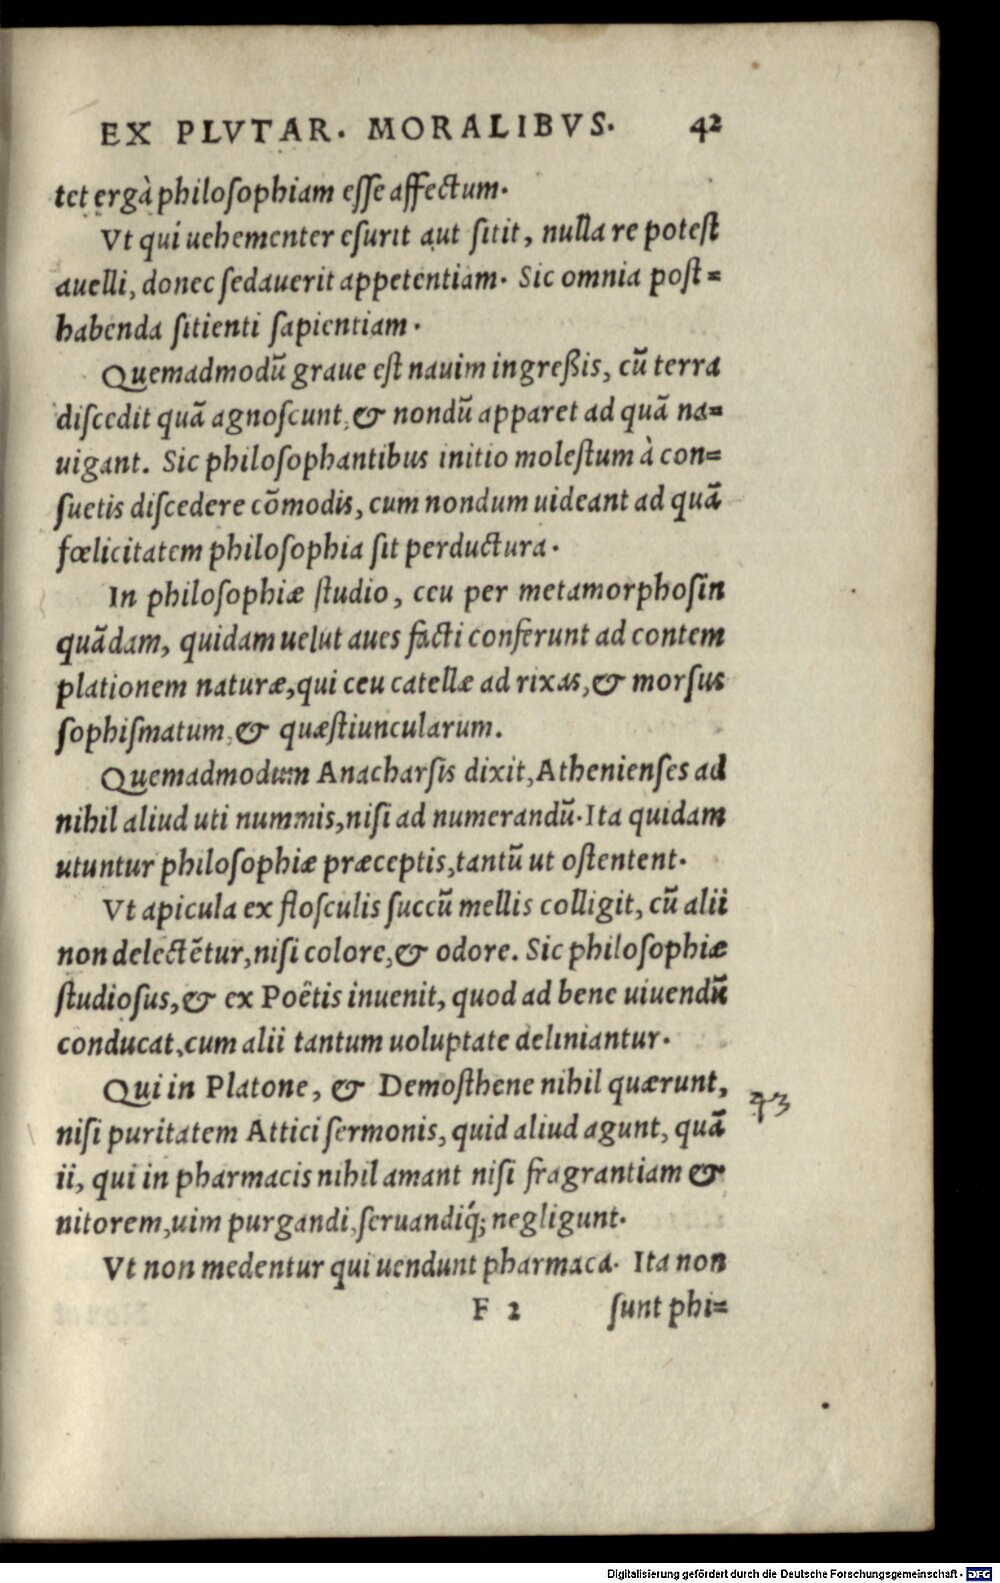 EX PLVTAR. MORALIBVS. 42
tet ergà philosophiam esse affectum.
Vt qui uehementer esurit aut sitit, nulla re potest
auelli, donec sedauerit appetentiam. Sic omnia post=
habenda sitienti sapientiam.
Quemadmodū graue est nauim ingreßis, cū terra
discedit quā agnoscunt, & nondū apparet ad quā na=
uigant. Sic philosophantibus initio molestum à con=
suetis discedere cōmodis, cum nondum uideant ad quā
fœlicitatem philosophia sit perductura.
In philosophiæ studio, ceu per metamorphosin
quādam, quidam uelut aues facti conferunt ad contem
plationem naturæ, qui ceu catellæ ad rixas, & morsus
sophismatum, & quæstiuncularum.
Quemadmodum Anacharsis dixit, Athenienses ad
nihil aliud uti nummis, nisi ad numerandū. Ita quidam
utuntur philosophiæ præceptis, tantū ut ostentent.
Vt apicula ex flosculis succū mellis colligit, cū alii
non delectētur, nisi colore, & odore. Sic philosophiæ
studiosus, & ex Poëtis inuenit, quod ad bene uiuendū
conducat, cum alii tantum uoluptate deliniantur.
Qui in Platone, & Demosthene nihil quærunt,
43
nisi puritatem Attici sermonis, quid aliud agunt, quā
ii, qui in pharmacis nihil amant nisi fragrantiam &
nitorem, uim purgandi, seruandiq́; negligunt.
Vt non medentur qui uendunt pharmaca. Ita non
F 2 sunt phi=
Digitalisierung gefördert durch die Deutsche Forschungsgemeinschaft - DFG